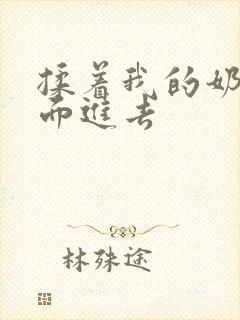 揉着我的奶
而进去
林殊途